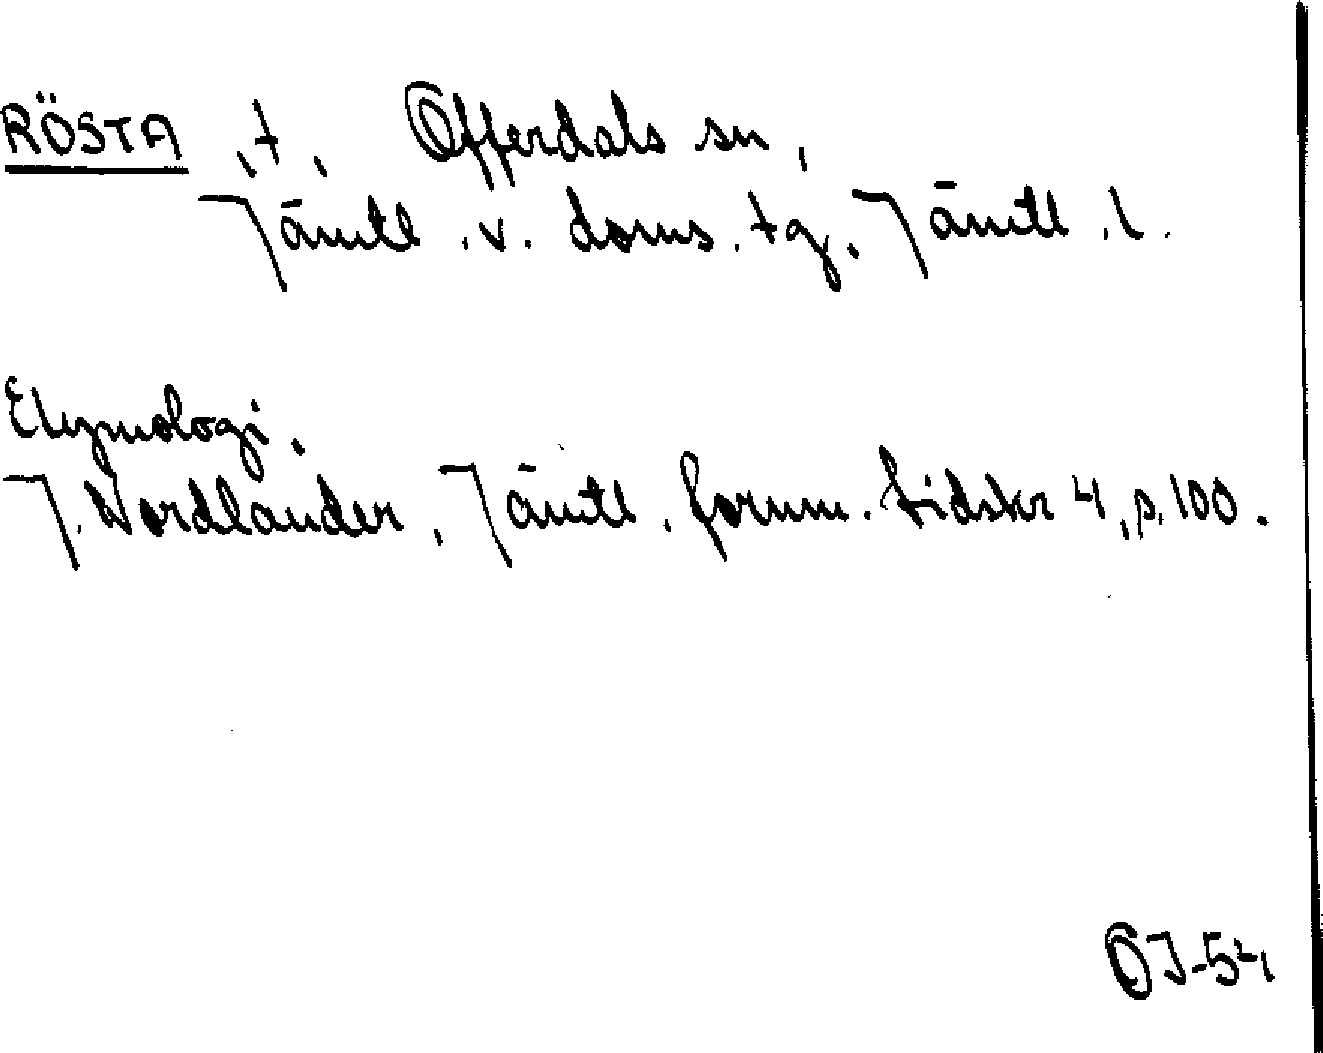 RÖSTA, t, Offerdals sn,
Jämtl. v. doms. tg. Jämtl. l.
Etymologi.
J. Nordlander, Jämtl. fornm. tidskr 4, s. 100.
OJ-54